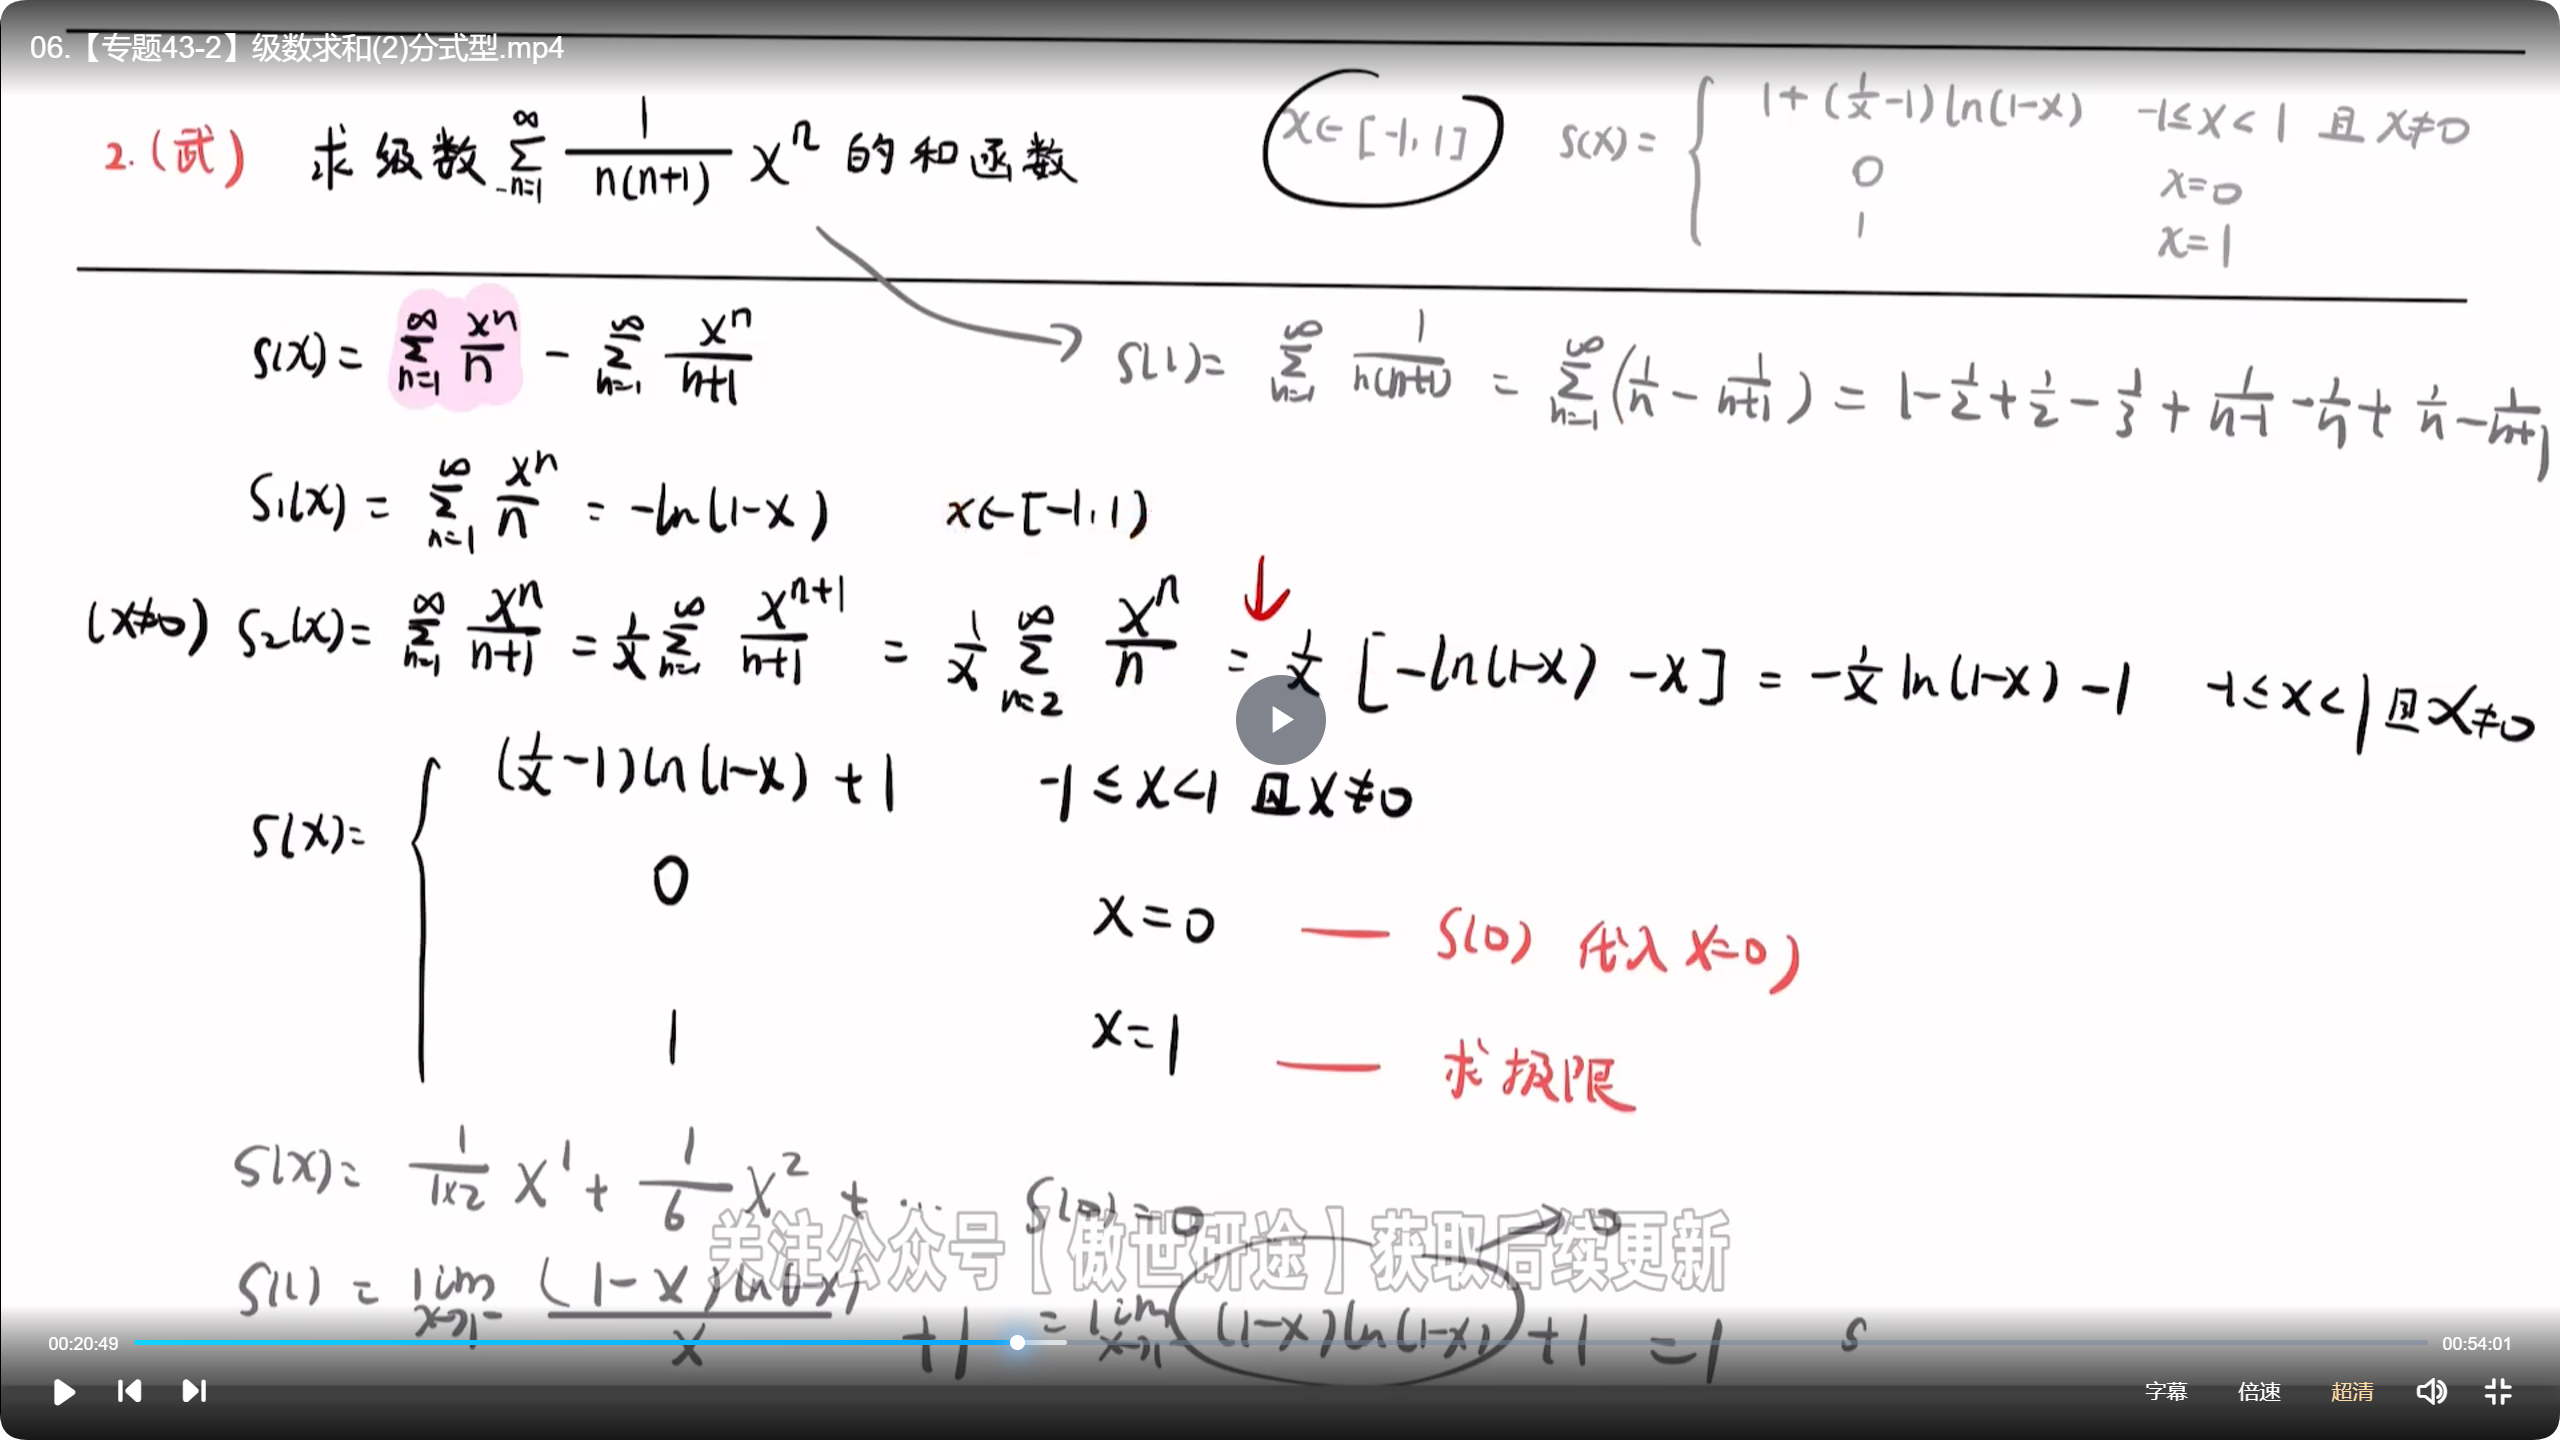 06.【专题43-2】级数求和(2)分式型.mp4
2.(武) 求级数 ∑_{n=1}^{∞} 1/(n(n+1)) x^n 的和函数
x∈[-1,1]
S(x)= { 1+(1/x-1)ln(1-x) -1≤x<1 且 x≠0
0 x=0
1 x=1
S(x)= ∑_{n=1}^{∞} x^n/n - ∑_{n=1}^{∞} x^n/(n+1)
S(1)= ∑_{n=1}^{∞} 1/(n(n+1)) = ∑_{n=1}^{∞} (1/n - 1/(n+1)) = 1-1/2+1/2-1/3+1/(n-1)-1/n+1/n-1/(n+1)
S₁(x) = ∑_{n=1}^{∞} x^n/n = -ln(1-x) x∈[-1,1)
(x≠0) S₂(x)= ∑_{n=1}^{∞} x^n/(n+1) = 1/x ∑_{n=1}^{∞} x^{n+1}/(n+1) = 1/x ∑_{n=2}^{∞} x^n/n = 1/x [-ln(1-x)-x] = -1/x ln(1-x)-1 -1≤x<1且x≠0
S(x)= { (1/x-1)ln(1-x)+1 -1≤x<1 且x≠0
0 x=0 — S(0) 代入x=0)
1 x=1 — 求极限
S(x)= 1/(1×2) x^1 + 1/6 x^2 + ... S(0)=0
关注公众号【傲世研途】获取后续更新
S(1) = lim_{x→1⁻} (1-x)ln(1-x)/x +1 = lim_{x→1} (1-x)ln(1-x)+1 =1 →0
00:20:49
00:54:01
字幕 倍速 超清